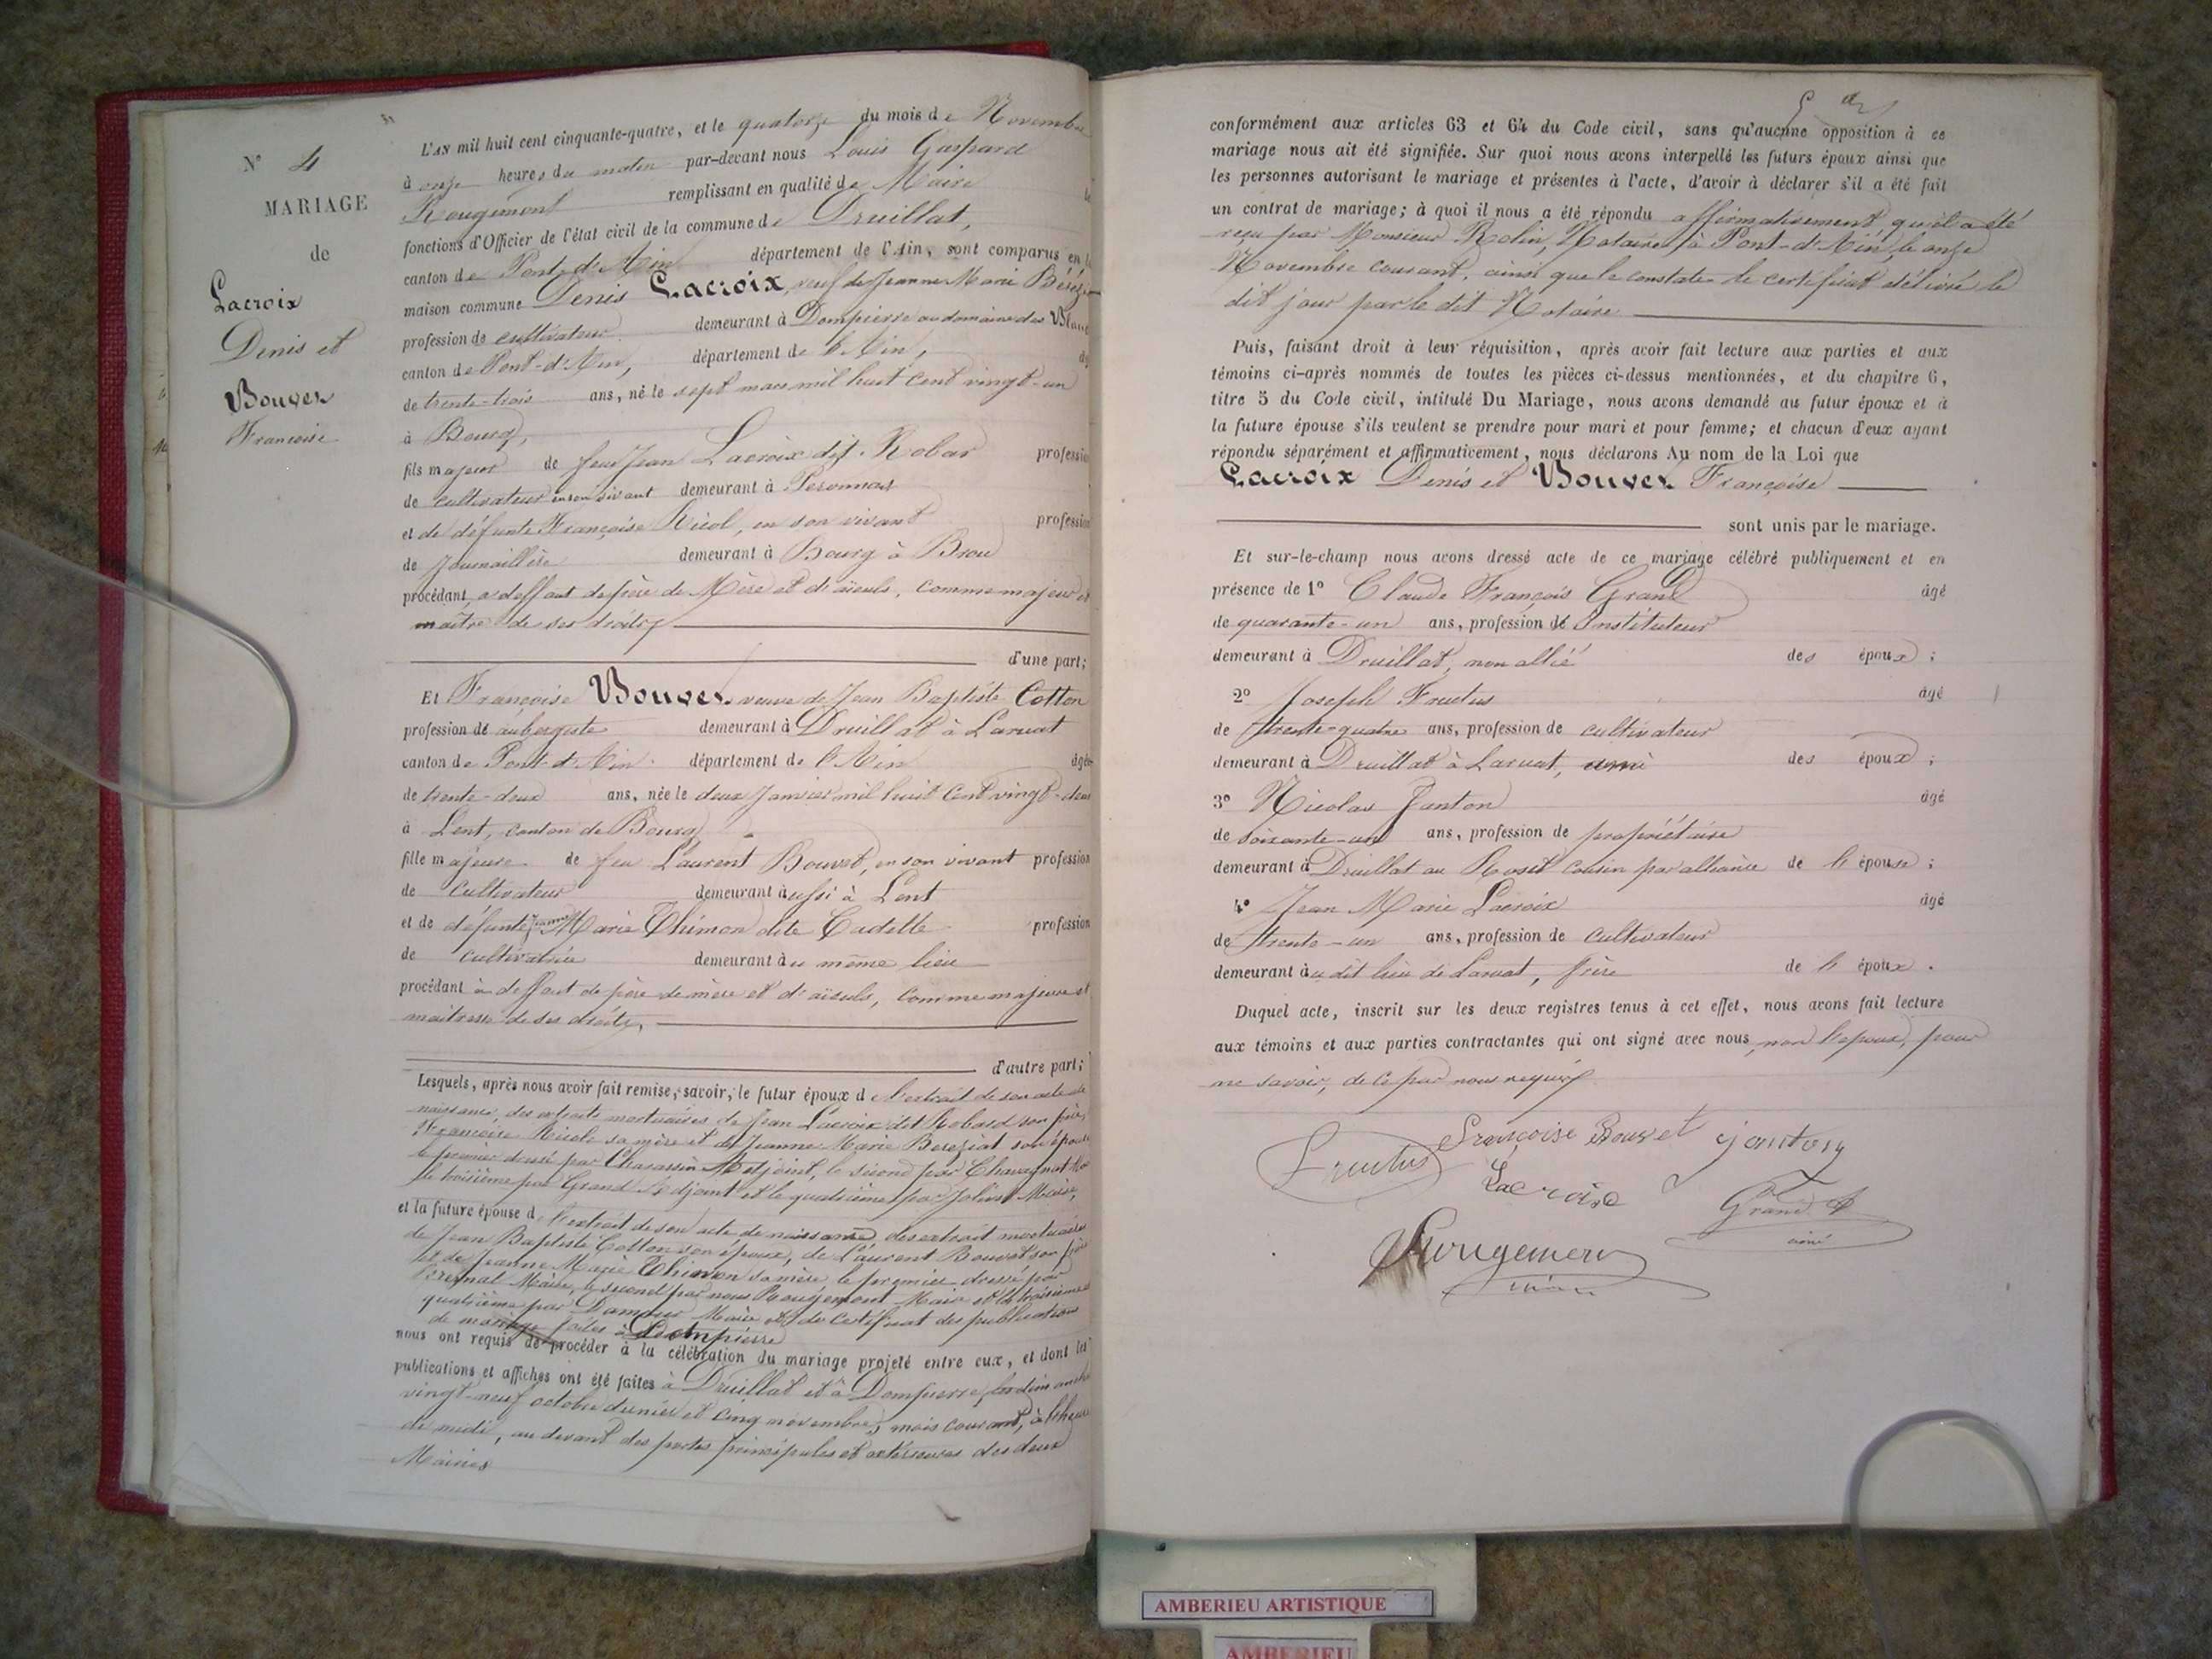 N° 4
MARIAGE
de
Lacroix
Denis et
Bouvet
Françoise
L'AN mil huit cent cinquante-quatre, et le quatorze du mois de Novembre
à onze heures du matin par-devant nous Louis Gaspard
Rougemont remplissant en qualité de Maire
fonctions d'Officier de l'état civil de la commune de Druillat,
canton de Pont-d'Ain département de l'Ain, sont comparus en
maison commune Denis Lacroix, veuf de Jeanne Marie
profession de cultivateur demeurant à Dompierre au domaine des
canton de Pont-d'Ain, département de l'Ain,
de trente-trois ans, né le sept mars mil huit cent vingt-un
à Bourg,
fils majeur de feu Jean Lacroix dit Robar profession
de cultivateur en son vivant demeurant à Peronnas
et de défunte Françoise Nicol, en son vivant profession
de Journaillère demeurant à Bourg à Brou
procédant, a deffaut de père de Mère et d'aïeuls, comme majeur et
maître de ses droits,
d'une part;
Et Françoise Bouvet veuve de Jean Baptiste Cotton
profession de aubergiste demeurant à Druillat à Laruat
canton de Pont-d'Ain département de l'Ain âgée
de trente-deux ans, née le deux Janvier mil huit cent vingt-deux
à Lent, canton de Bourg
fille majeure de feu Laurent Bouvet, en son vivant profession
de Cultivateur demeurant aussi à Lent
et de défunte Jeanne Marie Thimon dite Cadette profession
de cultivatrice demeurant au même lieu
procédant à deffaut de père de mère et d'aïeuls, comme majeure et
maitresse de ses droits,
d'autre part;
Lesquels, après nous avoir fait remise, savoir, le futur époux de l'extrait de son acte de
naissance, des extraits mortuaires de Jean Lacroix dit Robard son père,
Françoise Nicole sa mère et de Jeanne Marie Bereziat son épouse
le premier dressé par Chavassin Adjoint, le second par Chavagnat
le troisième par Grand Adjoint et le quatrième par Jolivet Maire,
et la future épouse de l'extrait de son acte de naissance, des extrait mortuaires
de Jean Baptiste Cotton son époux, de Laurent Bouvet son père
et de Jeanne Marie Thimon sa mère, le premier dressé par
Maire, le second par nous Rougemont Maire et le troisième
quatrième par Damour Maire et de certificat des publications
de mariage faites à Dompierre
nous ont requis de procéder à la célébration du mariage projeté entre eux, et dont les
publications et affiches ont été faites à Druillat et à Dompierre, les dimanches
vingt-neuf octobre dernier et cinq novembre, mois courant, à l'heure
de midi, au devant des portes principales et extérieures des deux
Mairies
conformément aux articles 63 et 64 du Code civil, sans qu'aucune opposition à ce
mariage nous ait été signifiée. Sur quoi nous avons interpellé les futurs époux ainsi que
les personnes autorisant le mariage et présentes à l'acte, d'avoir à déclarer s'il a été fait
un contrat de mariage; à quoi il nous a été répondu affirmativement qu'il a été
reçu par Monsieur Rolin, Notaire à Pont-d'Ain, le onze
Novembre courant, ainsi que le constate le certificat délivré le
dit jour par le dit Notaire
Puis, faisant droit à leur réquisition, après avoir fait lecture aux parties et aux
témoins ci-après nommés de toutes les pièces ci-dessus mentionnées, et du chapitre 6,
titre 5 du Code civil, intitulé Du Mariage, nous avons demandé au futur époux et à
la future épouse s'ils veulent se prendre pour mari et pour femme; et chacun d'eux ayant
répondu séparément et affirmativement, nous déclarons Au nom de la Loi que
Lacroix Denis et Bouvet Françoise
sont unis par le mariage.
Et sur-le-champ nous avons dressé acte de ce mariage célébré publiquement et en
présence de 1° Claude François Grand âgé
de quarante-un ans, profession de Instituteur
demeurant à Druillat, non allié des époux;
2° Joseph Fructus âgé
de trente-quatre ans, profession de cultivateur
demeurant à Druillat à Laruat, ami des époux;
3° Nicolas Janton âgé
de soixante-un ans, profession de propriétaire
demeurant à Druillat au Rosit cousin par alliance de l'épouse;
4° Jean Marie Lacroix âgé
de trente-un ans, profession de Cultivateur
demeurant au dit lieu de Laruat, frère de l'époux.
Duquel acte, inscrit sur les deux registres tenus à cet effet, nous avons fait lecture
aux témoins et aux parties contractantes qui ont signé avec nous, non l'époux, pour
ne savoir, de ce par nous requis
Fructus Françoise Bouvet janton
Lacroix Grand
Rougemont
maire
AMBERIEU ARTISTIQUE
AMBERIEU